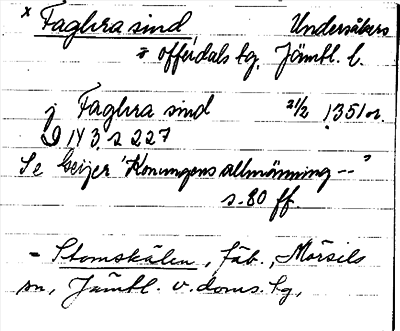 x Faghra sind Undersåkers
≠ offerdals tg, Jämtl. l.
j Faghra sind 21/2 1351 or.
DN 3, s 227
Se Geijer "Konungens allmänning --"
s. 80 ff.
- Stomskälen, fäb., Mörsils
sn, Jämtl. v. doms. tg,